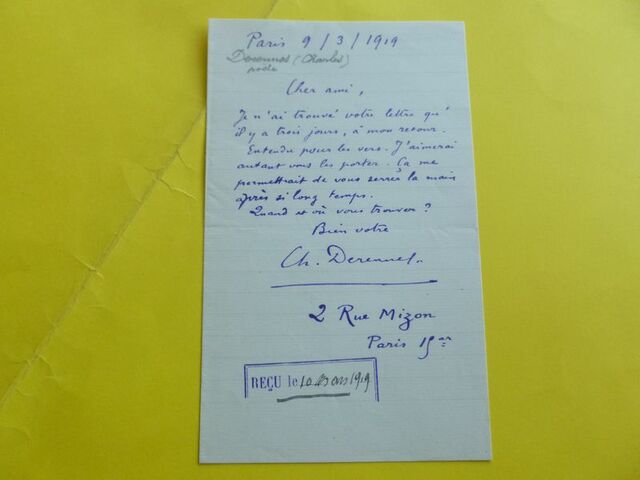 Paris 9/3/1919
Derennes (Charles)
poète
Cher ami,
Je n'ai trouvé votre lettre qu'
il y a trois jours, à mon retour.
Entendu pour les vers. J'aimerai
autant vous les porter. Ça me
permettrait de vous serrer la main
après si long temps.
Quand et où vous trouver ?
Bien votre
Ch. Derennes
2 Rue Mizon
Paris 15ar
REÇU le 10 Mars 1919